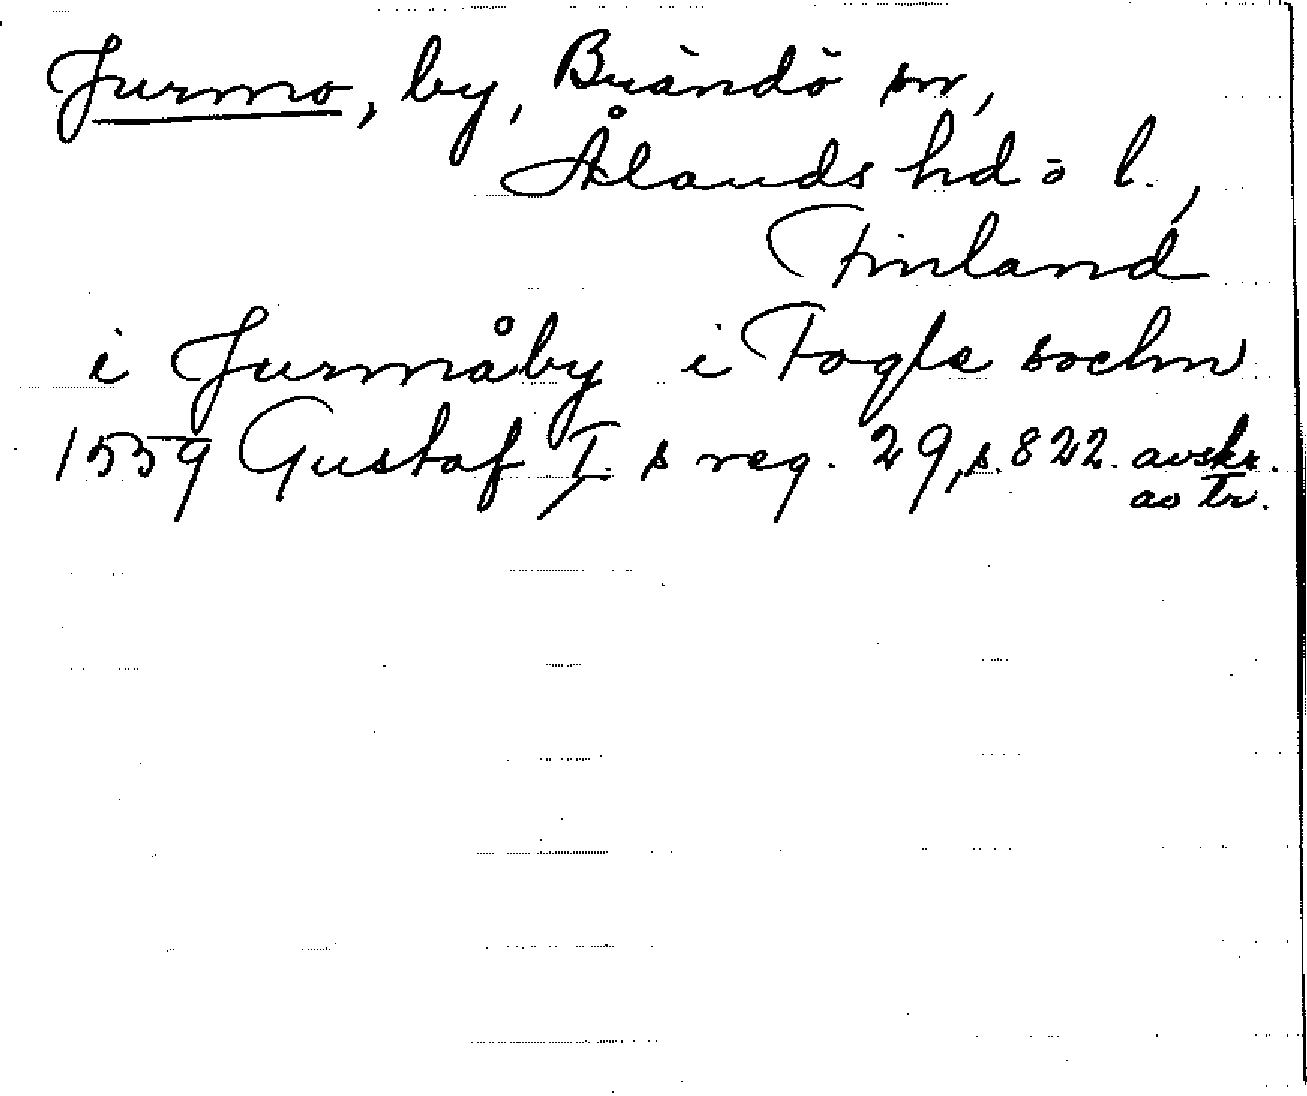 Jurmo, by, Brändö sn,
Ålands hd o l.,
Finland
i Jurmåby i Fogle sochn
1559 Gustaf I. s reg. 29, s. 822. avskr.
av tr.